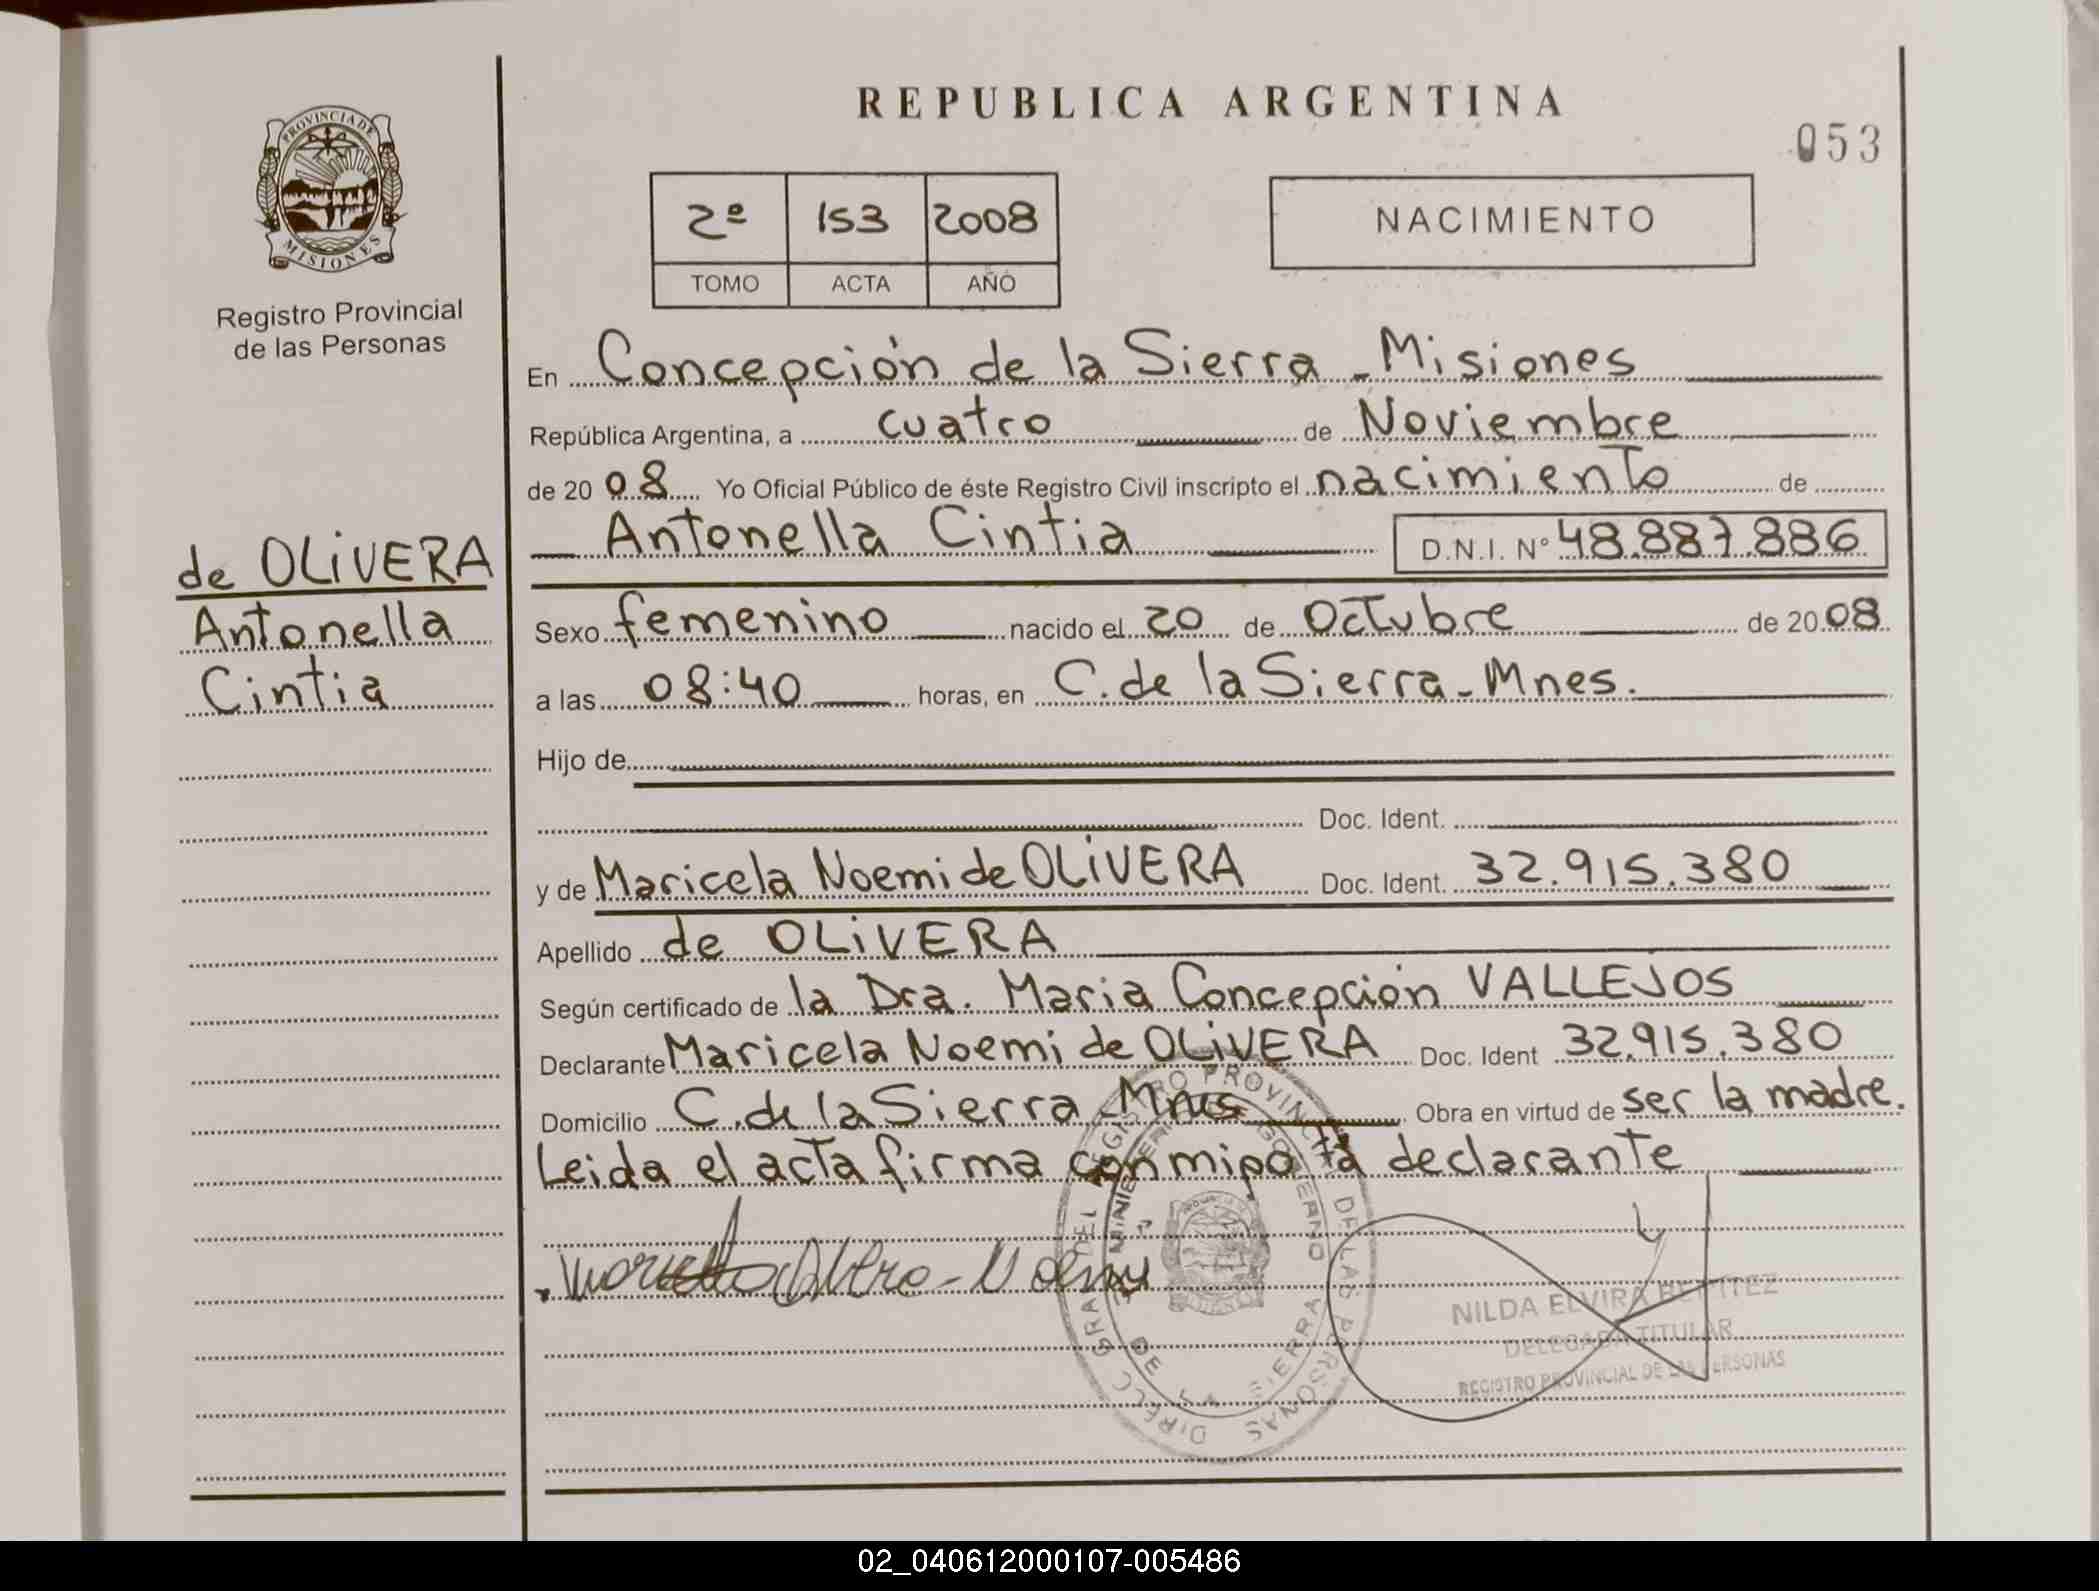 REPUBLICA ARGENTINA
053
PROVINCIA DE
MISIONES
Registro Provincial
de las Personas
2º 153 2008
TOMO ACTA AÑO
NACIMIENTO
En Concepción de la Sierra - Misiones
República Argentina, a cuatro de Noviembre
de 20 08 Yo Oficial Público de éste Registro Civil inscripto el nacimiento de
Antonella Cintia D.N.I. Nº 48.887.886
de OLiVERA
Antonella
Cintia
Sexo femenino nacido el 20 de Octubre de 20 08
a las 08:40 horas, en C. de la Sierra - Mnes.
Hijo de
Doc. Ident.
y de Maricela Noemi de OLiVERA Doc. Ident. 32.915.380
Apellido de OLiVERA
Según certificado de la Dra. Maria Concepción VALLEJOS
Declarante Maricela Noemi de OLiVERA Doc. Ident 32.915.380
Domicilio C. de la Sierra - Mnes Obra en virtud de ser la madre.
Leida el acta firma conmigo la declarante
NILDA ELVIRA BENITEZ
DELEGADA TITULAR
REGISTRO PROVINCIAL DE LAS PERSONAS
02_040612000107-005486